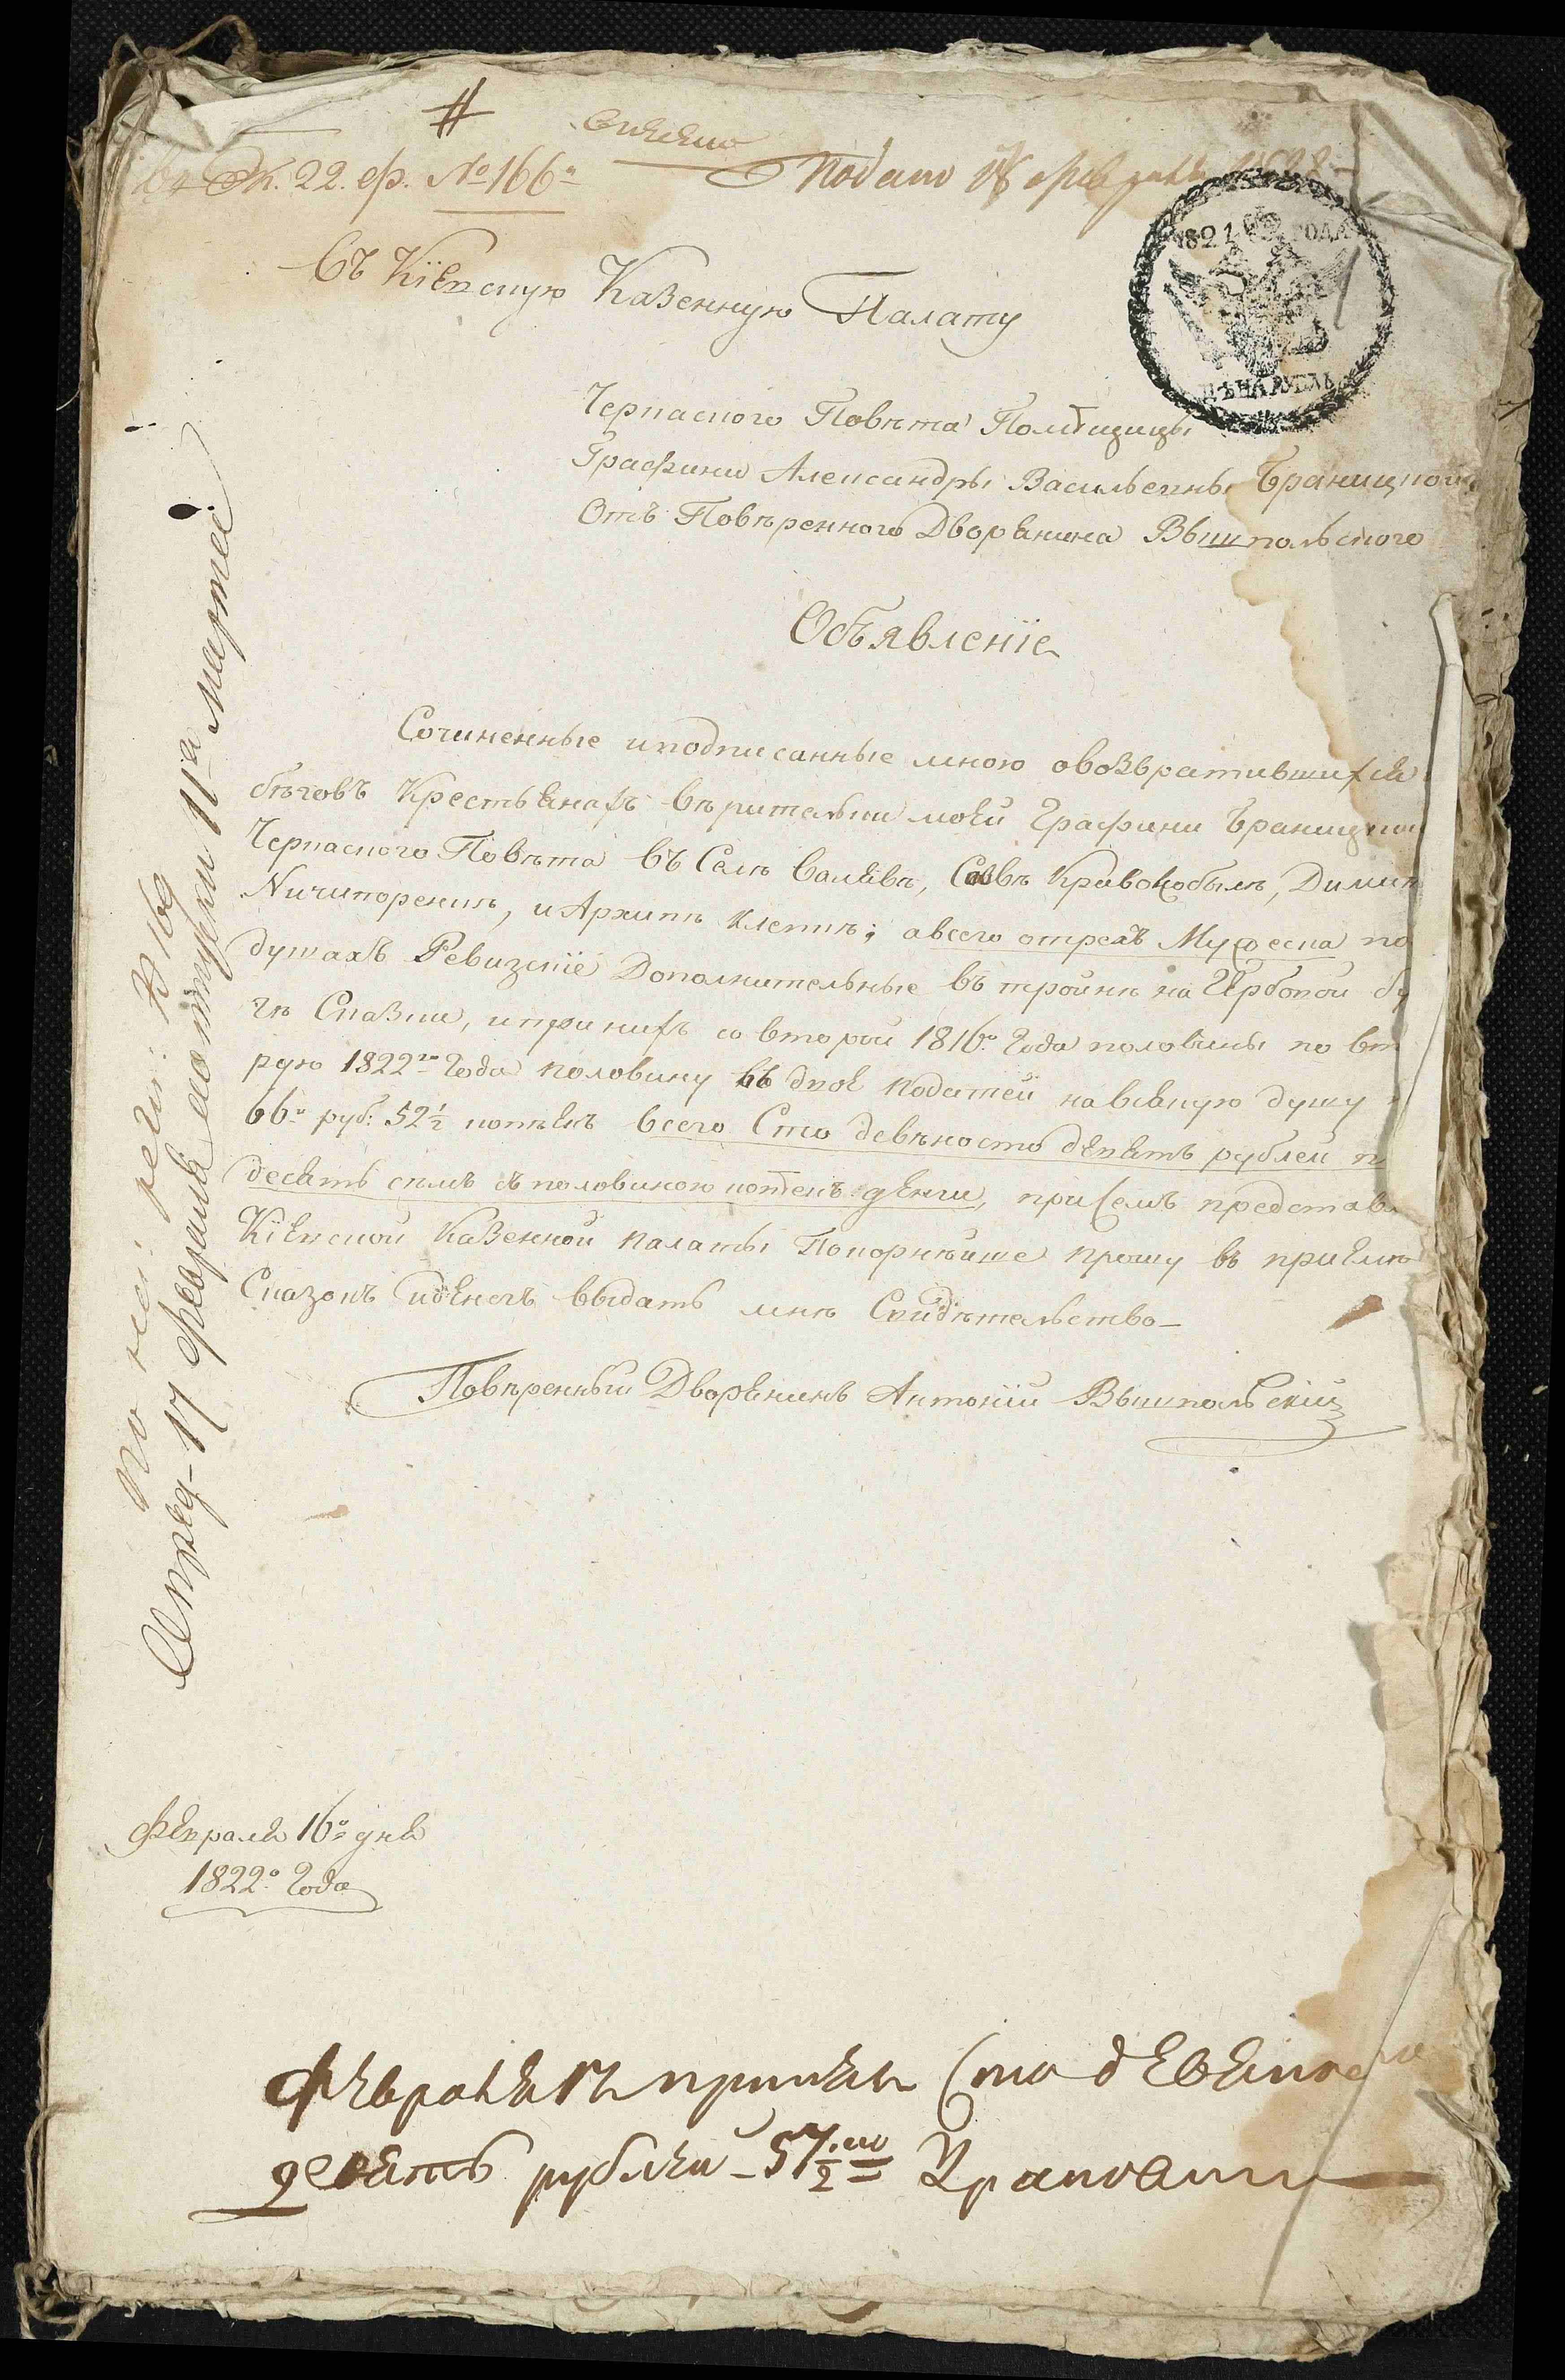 Ж. 22. ф. № 166
Подано 18 февраля 1822
1821 ГОДА
ЦѢНА РУБЛЬ
Въ Кіевскую Казенную Палату
Черкаского Повѣта Помѣщицы
Графини Александры Васильевны Браницкой
Отъ Повѣренного Дворянина Вышпольского
Объявленіе
Сочиненные и подписанные мною о возвратившихся
бѣговъ Крестьянахъ вѣрительницы моей Графини Браницкой
Черкаского Повѣта въ Селѣ Валявѣ, Савѣ Кривокобылѣ, Димит
Ничипоренкѣ, и Архипѣ Клепкѣ; а всего о трехъ Мужеска по
душахъ Ревизскіе Дополнительные въ тройнѣ на Гербовой бу
гѣ Сказки, и при нихъ со второй 1816го Года половины по вт
рую 1822го Года половину въ двое податей на всякую душу
66 руб: 52½ копѣекъ всего Сто девѣносто девять рублей п
десять семъ съ половиною копѣекъ денги, при семъ представ
Кіевской Казенной палаты Покорнѣйше прошу въ приемѣ
Сказокъ и денегъ выдать мнѣ Свидѣтельство
Повѣренный Дворянинъ Антоній Вышпольскій
По ней реги: № 169
17 февраля 11а марта
Февраля 16го дня
1822го Года
Февраля 17 принялъ Сто девеноста
девять рублей 57½